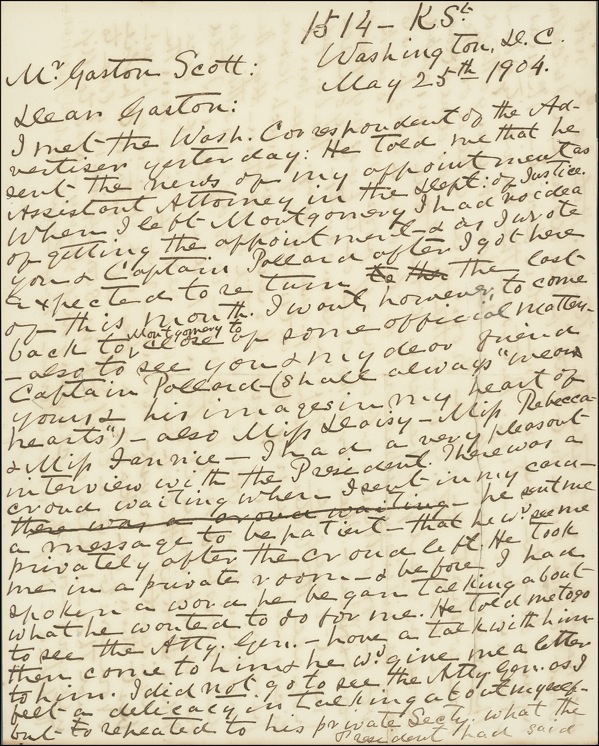 1514 - K St.
Washington, D.C.
May 25th 1904.
Mr Gaston Scott:
Dear Gaston:
I met the Wash. Correspondent of the Ad-
vertiser yesterday: He told me that he
sent the news of my appointment as
Assistant Attorney in the Dept: of Justice.
When I left Montgomery I had no idea
of getting the appointment - & as I wrote
you & Captain Pollard after I got here
expected to return to the the last
of this month. I want, however, to come
back to Montgomery to close up some official matters
- also to see you & my dear friend
Captain Pollard - (shall always "wear
yours & his images in my heart of
hearts") - also Miss Daisy - Miss Rebecca
& Miss Fannie - I had a very pleasant
interview with the President. There was a
croud waiting when I sent in my card -
there was a croud waiting - he sent me
a message to be patient - that he wd see me
privately after the croud left. He took
me in a private room - & before I had
spoken a word he began talking about
what he wanted to do for me. He told me to go
to see the Atty. Gen. - have a talk with him
then come to him & he wd give me a letter
to him. I did not go to see the Atty Gen. as I
felt a delicacy in talking about myself -
but repeated to his private Secty. what the
President had said